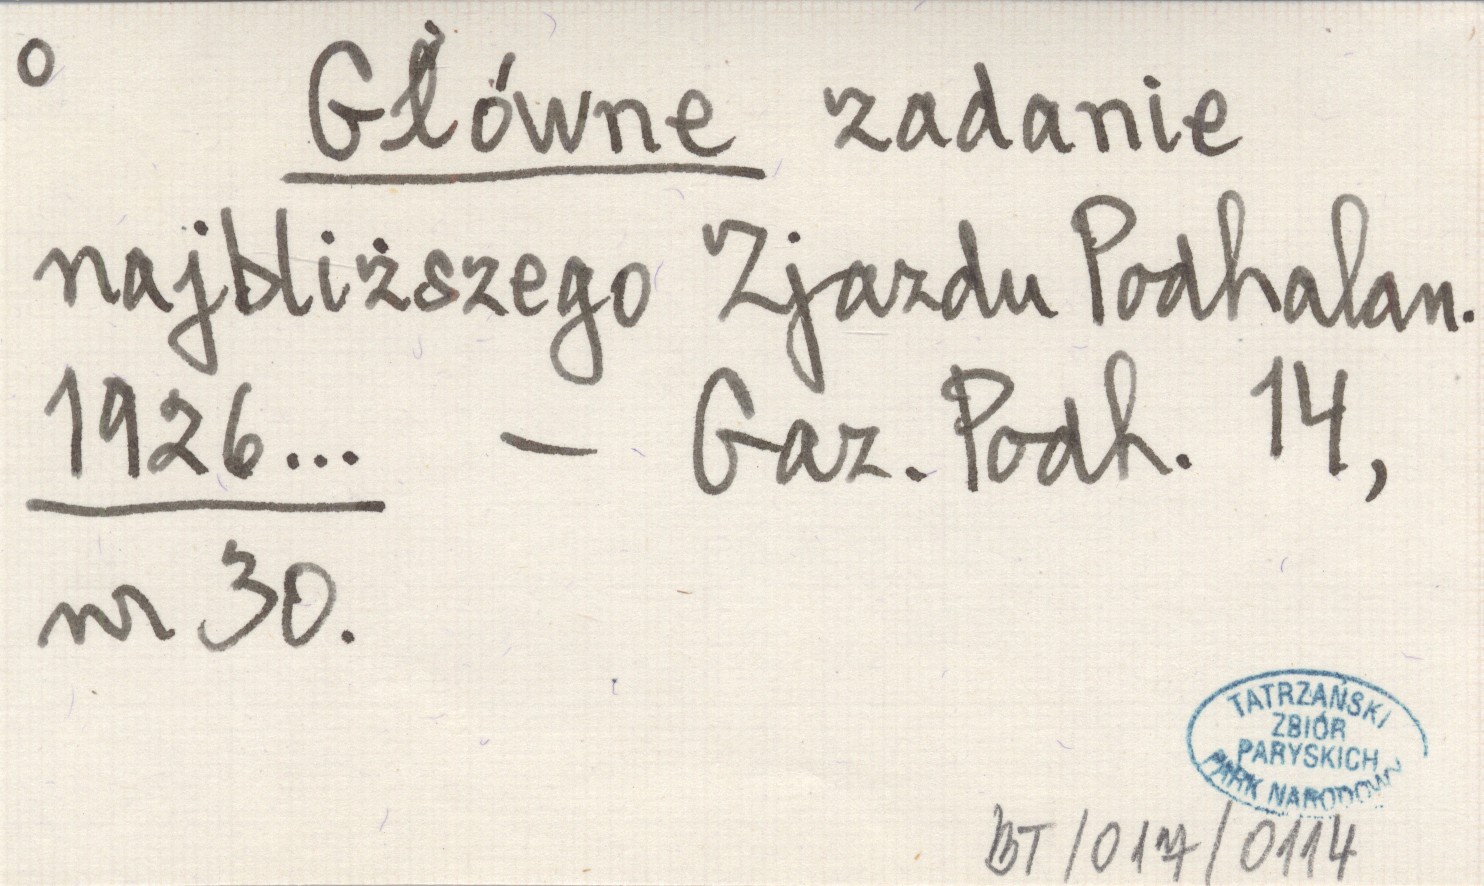 o Główne zadanie
najbliższego Zjazdu Podhalan.
1926... — Gaz. Podh. 14,
nr 30.
TATRZAŃSKI
ZBIÓR
PARYSKICH
PARK NARODOWY
BT/017/0114